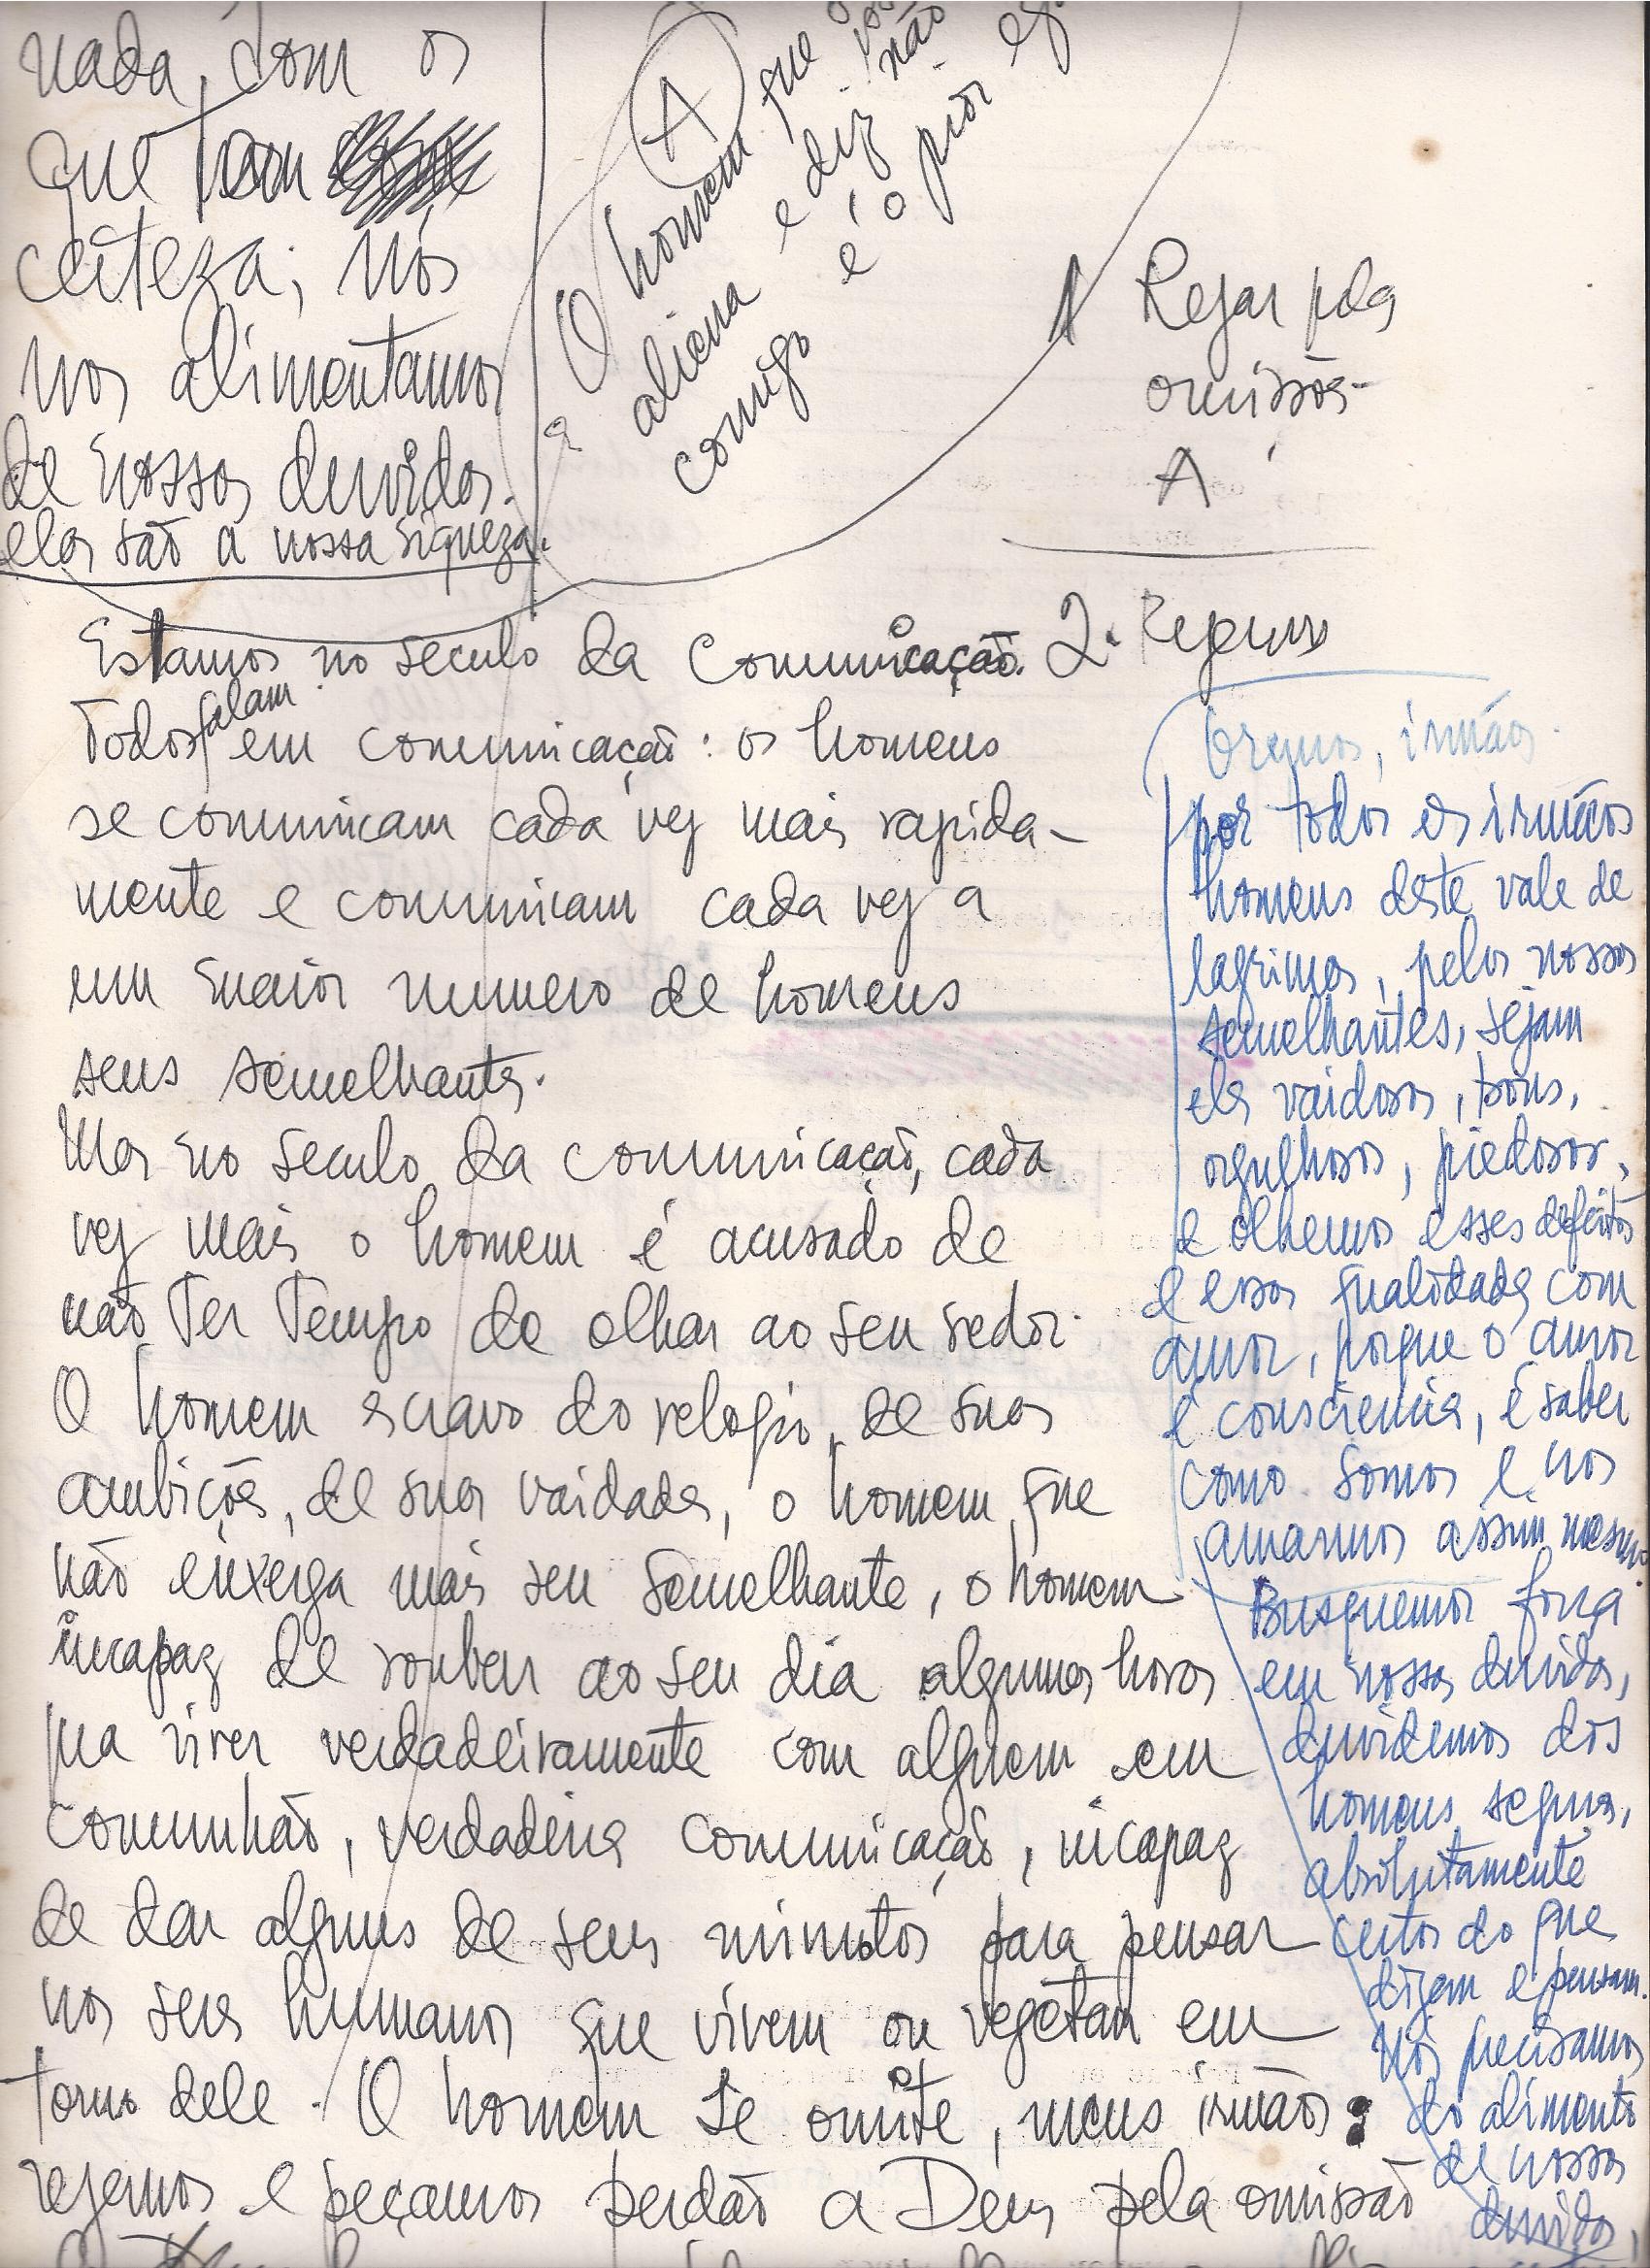 nada, com os
que tem
certeza; nós
nos alimentamos
de nossas duvidas.
elas são a nossa riqueza.
A
O homem que
aliena e diz não
comigo é o pior
A Rezar pelas
omissões
A
2ª
Estamos no seculo da comunicação.
Todos falam em comunicação: os homens
se comunicam cada vez mais rapida-
mente e comunicam cada vez a
um maior numero de homens
seus semelhantes.
Mas no seculo da comunicação, cada
vez mais o homem é acusado de
não ter tempo de olhar ao seu redor.
O homem escravo do relogio, de suas
ambições, de suas vaidades, o homem que
não enxerga mais seu semelhante, o homem
incapaz de roubar ao seu dia algumas horas
pra viver verdadeiramente com alguem em
comunhão, verdadeira comunicação, incapaz
de dar alguns de seus minutos para pensar
nos seres humanos que vivem ou vegetam em
torno dele. O homem se omite, meus irmãos:
rezemos e peçamos perdão a Deus pela omissão
Oremos, irmãos.
por todos os irmãos
homens deste vale de
lagrimas, pelos nossos
semelhantes, sejam
eles vaidosos, bons,
orgulhosos, piedosos,
e olhemos esses defeitos
e essas qualidades com
amor, porque o amor
é consciencia, é saber
como somos e nos
amarmos assim mesmo.
Busquemos força
em nossas duvidas,
duvidemos dos
homens seguros,
absolutamente
certos do que
dizem e pensam.
Nós precisamos
do alimento
de nossas
duvidas,